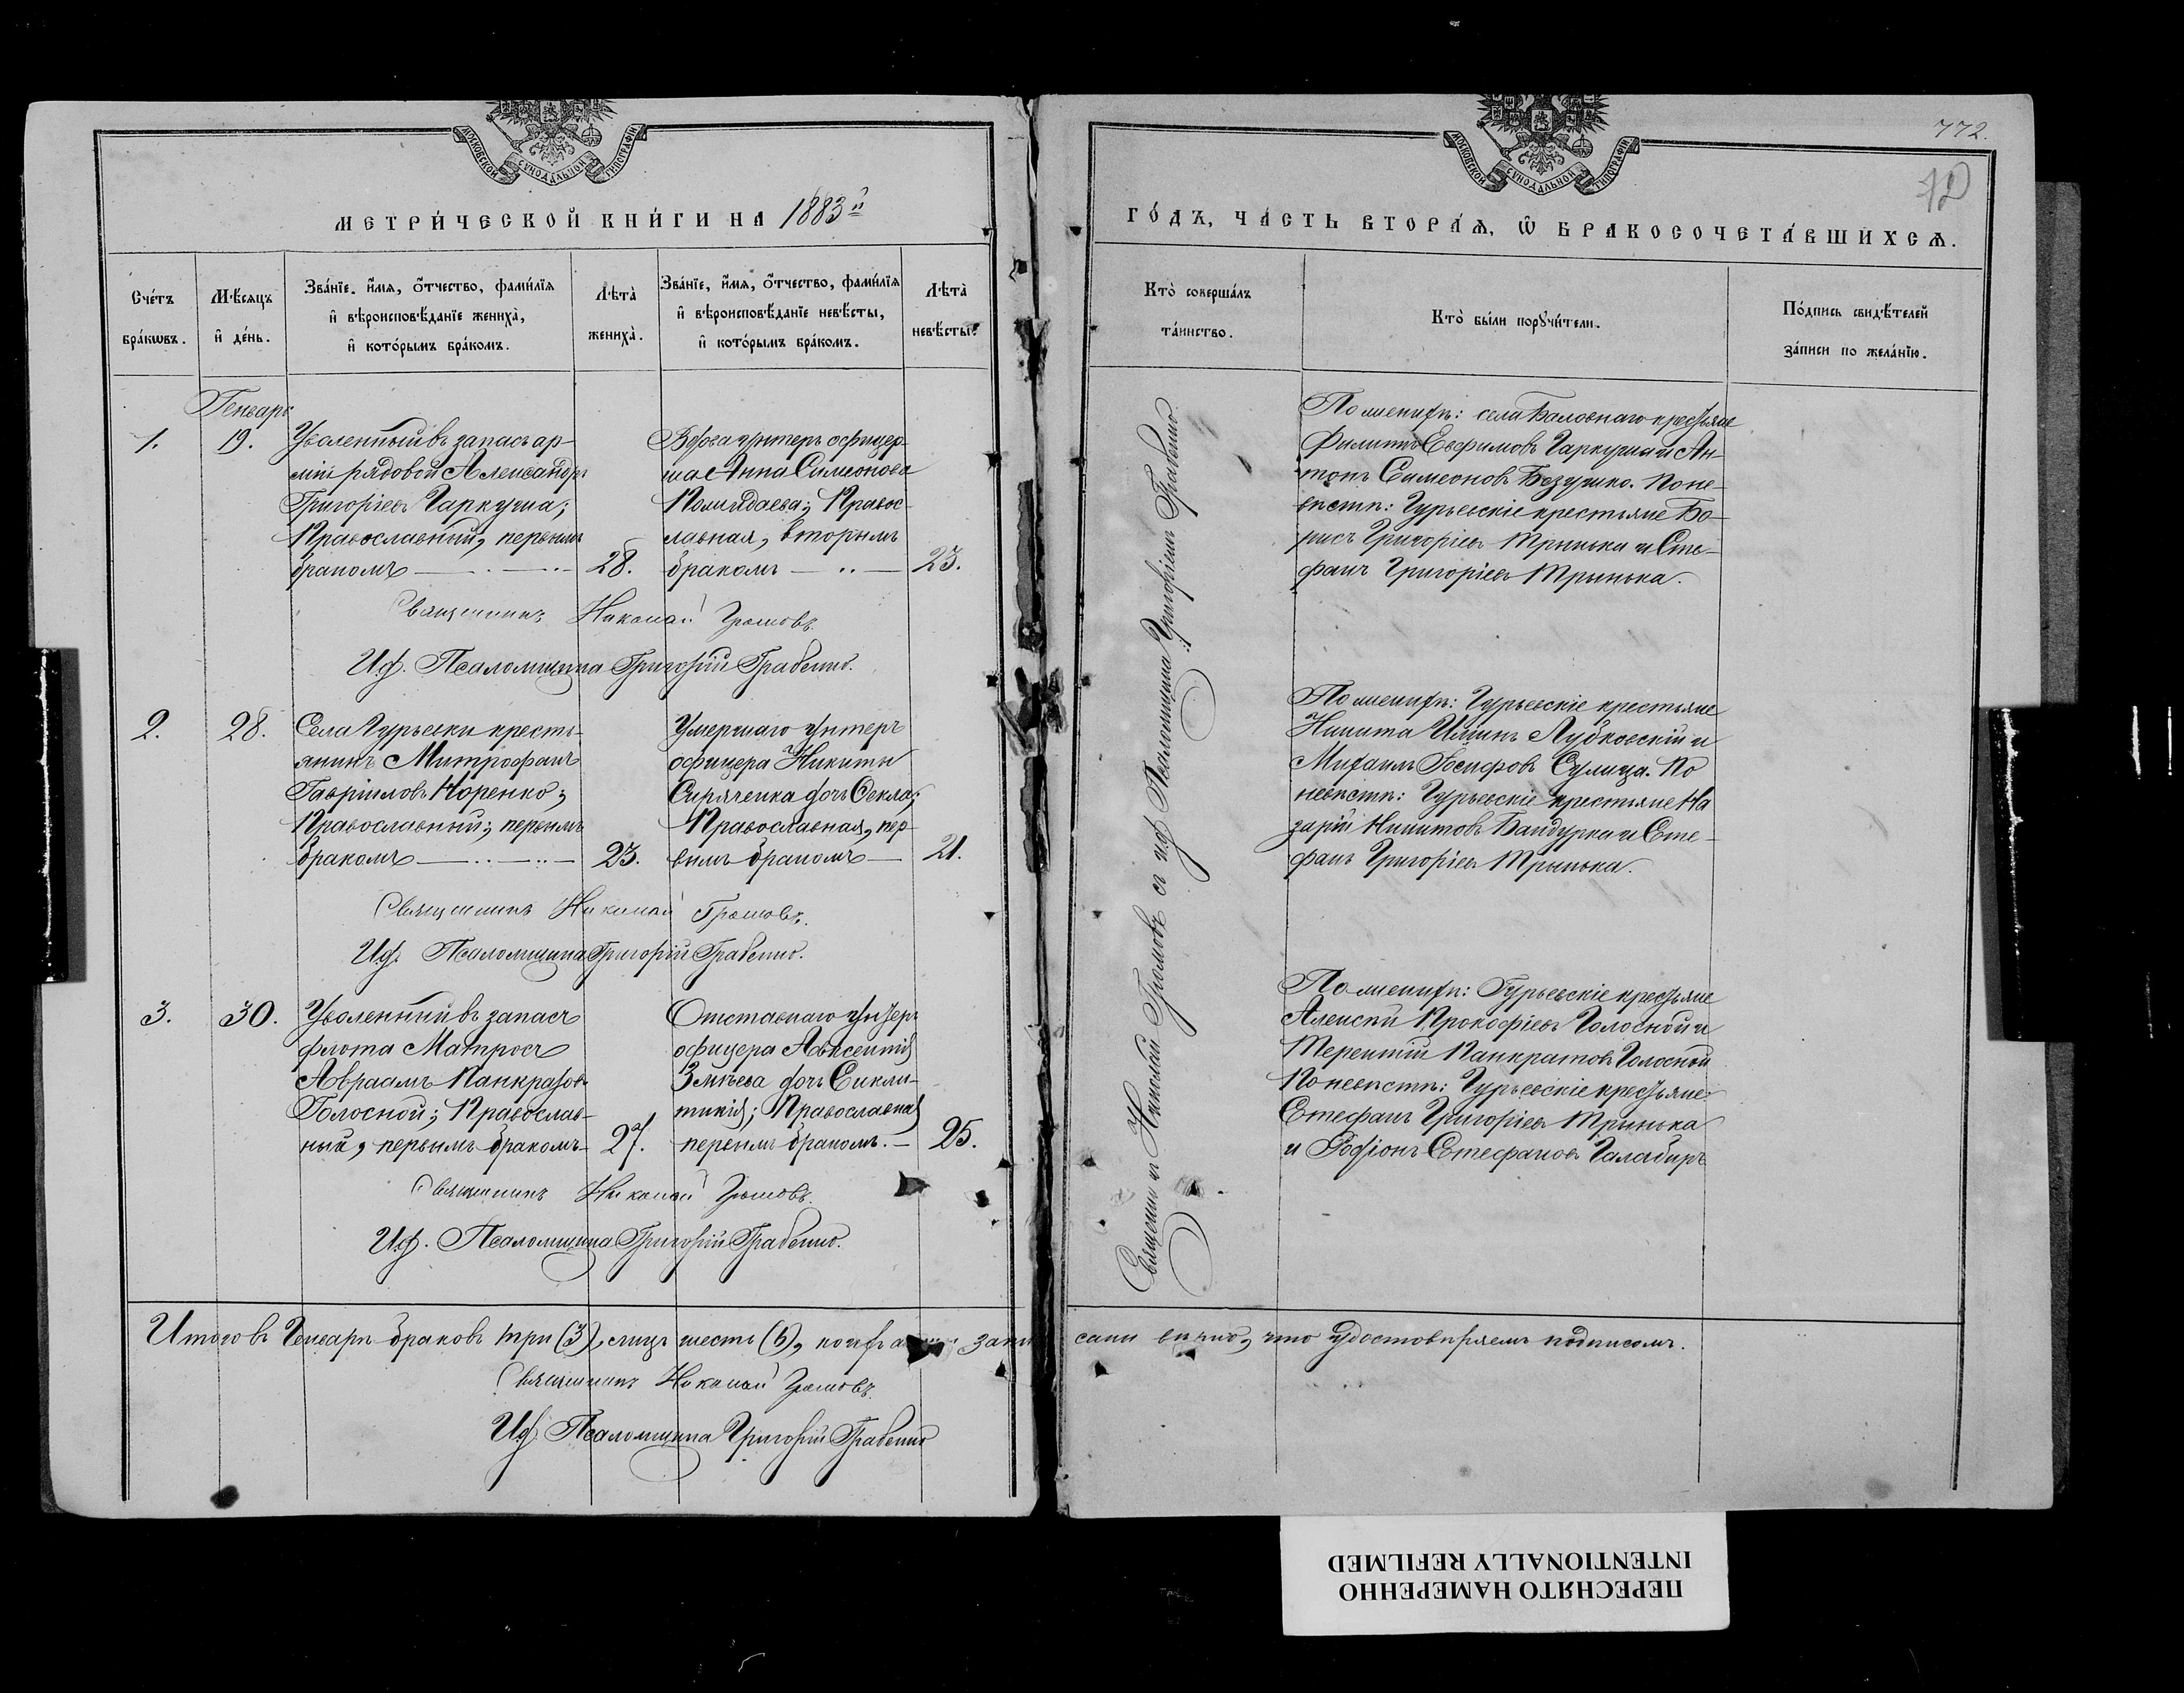 МОСКОВСКОЙ СѴНОДАЛЬНОЙ ТИПОГРАФІИ
МЕТРИ́ЧЕСКОЙ КНИ́ГИ НА 1883й
Сче́тъ бра́кωвъ.
Мѣ́сяцъ и҆ де́нь.
Зва́нїе, и҆́мѧ, ѻ҆́тчество, фами́лїѧ
и҆ вѣроисповѣ́данїе жениха̀,
и҆ кото́рымъ бра́комъ.
Лѣта̀ жениха̀.
Зва́нїе, и҆́мѧ, ѻ҆́тчество, фами́лїѧ
и҆ вѣроисповѣ́данїе невѣ́сты,
и҆ кото́рымъ бра́комъ.
Лѣта̀ невѣ́сты.
Генварь
1.
19.
Уволенный въ запасъ ар-
міи рядовой Александръ
Григоріевъ Гаркуша;
Православный, первымъ
бракомъ
28.
Вдова унтеръ офицер-
ша Анна Симеонова
; Правос-
лавная, вторымъ
бракомъ
23.
Священникъ Николай Громовъ.
И.д. Псаломщика Григорій Грабенко.
2.
28.
Села Гурьевки кресть-
янинъ Митрофанъ
Гавріиловъ Коренко;
Православный; первымъ
бракомъ
23.
Умершаго унтеръ
офицера Никиты
Сиряченка дочь Фекла;
Православная, пер-
вымъ бракомъ
21.
Священникъ Николай Громовъ.
И.д. Псаломщика Григорій Грабенко.
3.
30.
Уволенный въ запасъ
флота Матросъ
Авраамъ Панкратов
Голосной; Православ-
ный, первымъ бракомъ
27.
Отставнаго унтеръ
офицера Авксентія
Змѣева дочь Синкли-
тикія; Православная
первымъ бракомъ.
25.
Священникъ Николай Громовъ.
И.д. Псаломщика Григорій Грабенко.
Итого въ Генварѣ браковъ три (3), лицъ шесть (6), запи
Священникъ Николай Громовъ.
И.д. Псаломщика Григорій Грабенко
772.
12
МОСКОВСКОЙ СѴНОДАЛЬНОЙ ТИПОГРАФІИ
ГО́ДЪ, ЧА́СТЬ ВТОРА́Ѧ, Ѡ҆ БРАКОСОЧЕТА́ВШИХСѦ.
Кто̀ соверша́лъ
та́инство.
Кто̀ бы́ли порꙋчи́тели.
По́дпись свидѣ́телей
за́писи по жела́нїю.
Священникъ Николай Громовъ съ и.д. Псаломщика Григоріемъ Грабенко
По женихѣ: села Баловнаго крестьяне
Филиппъ Евфимовъ Гаркуша и Ан-
тонъ Симеоновъ Безушко. По не-
вѣстѣ: Гурьевскіе крестьяне Бо-
рисъ Григоріевъ Трынька и Сте-
фанъ Григоріевъ Трынька.
По женихѣ: Гурьевскіе крестьяне
Никита Ильинъ Лудковскій и
Михаилъ Іосифовъ Сулица. По
невѣстѣ: Гурьевскіе крестьяне На
зарій Никитовъ Бандурка и Сте-
фанъ Григоріевъ Трынька.
По женихѣ: Гурьевскіе крестьяне
Алексѣй Прокофіевъ Голосной и
Терентій Панкратовъ Голосной
По невѣстѣ: Гурьевскіе крестьяне
Стефанъ Григоріевъ Трынька
и Родіонъ Стефановъ Галабиръ
сали вѣрно, что удостовѣряемъ подписомъ.
ПЕРЕСНЯТО НАМЕРЕННО
INTENTIONALLY REFILMED